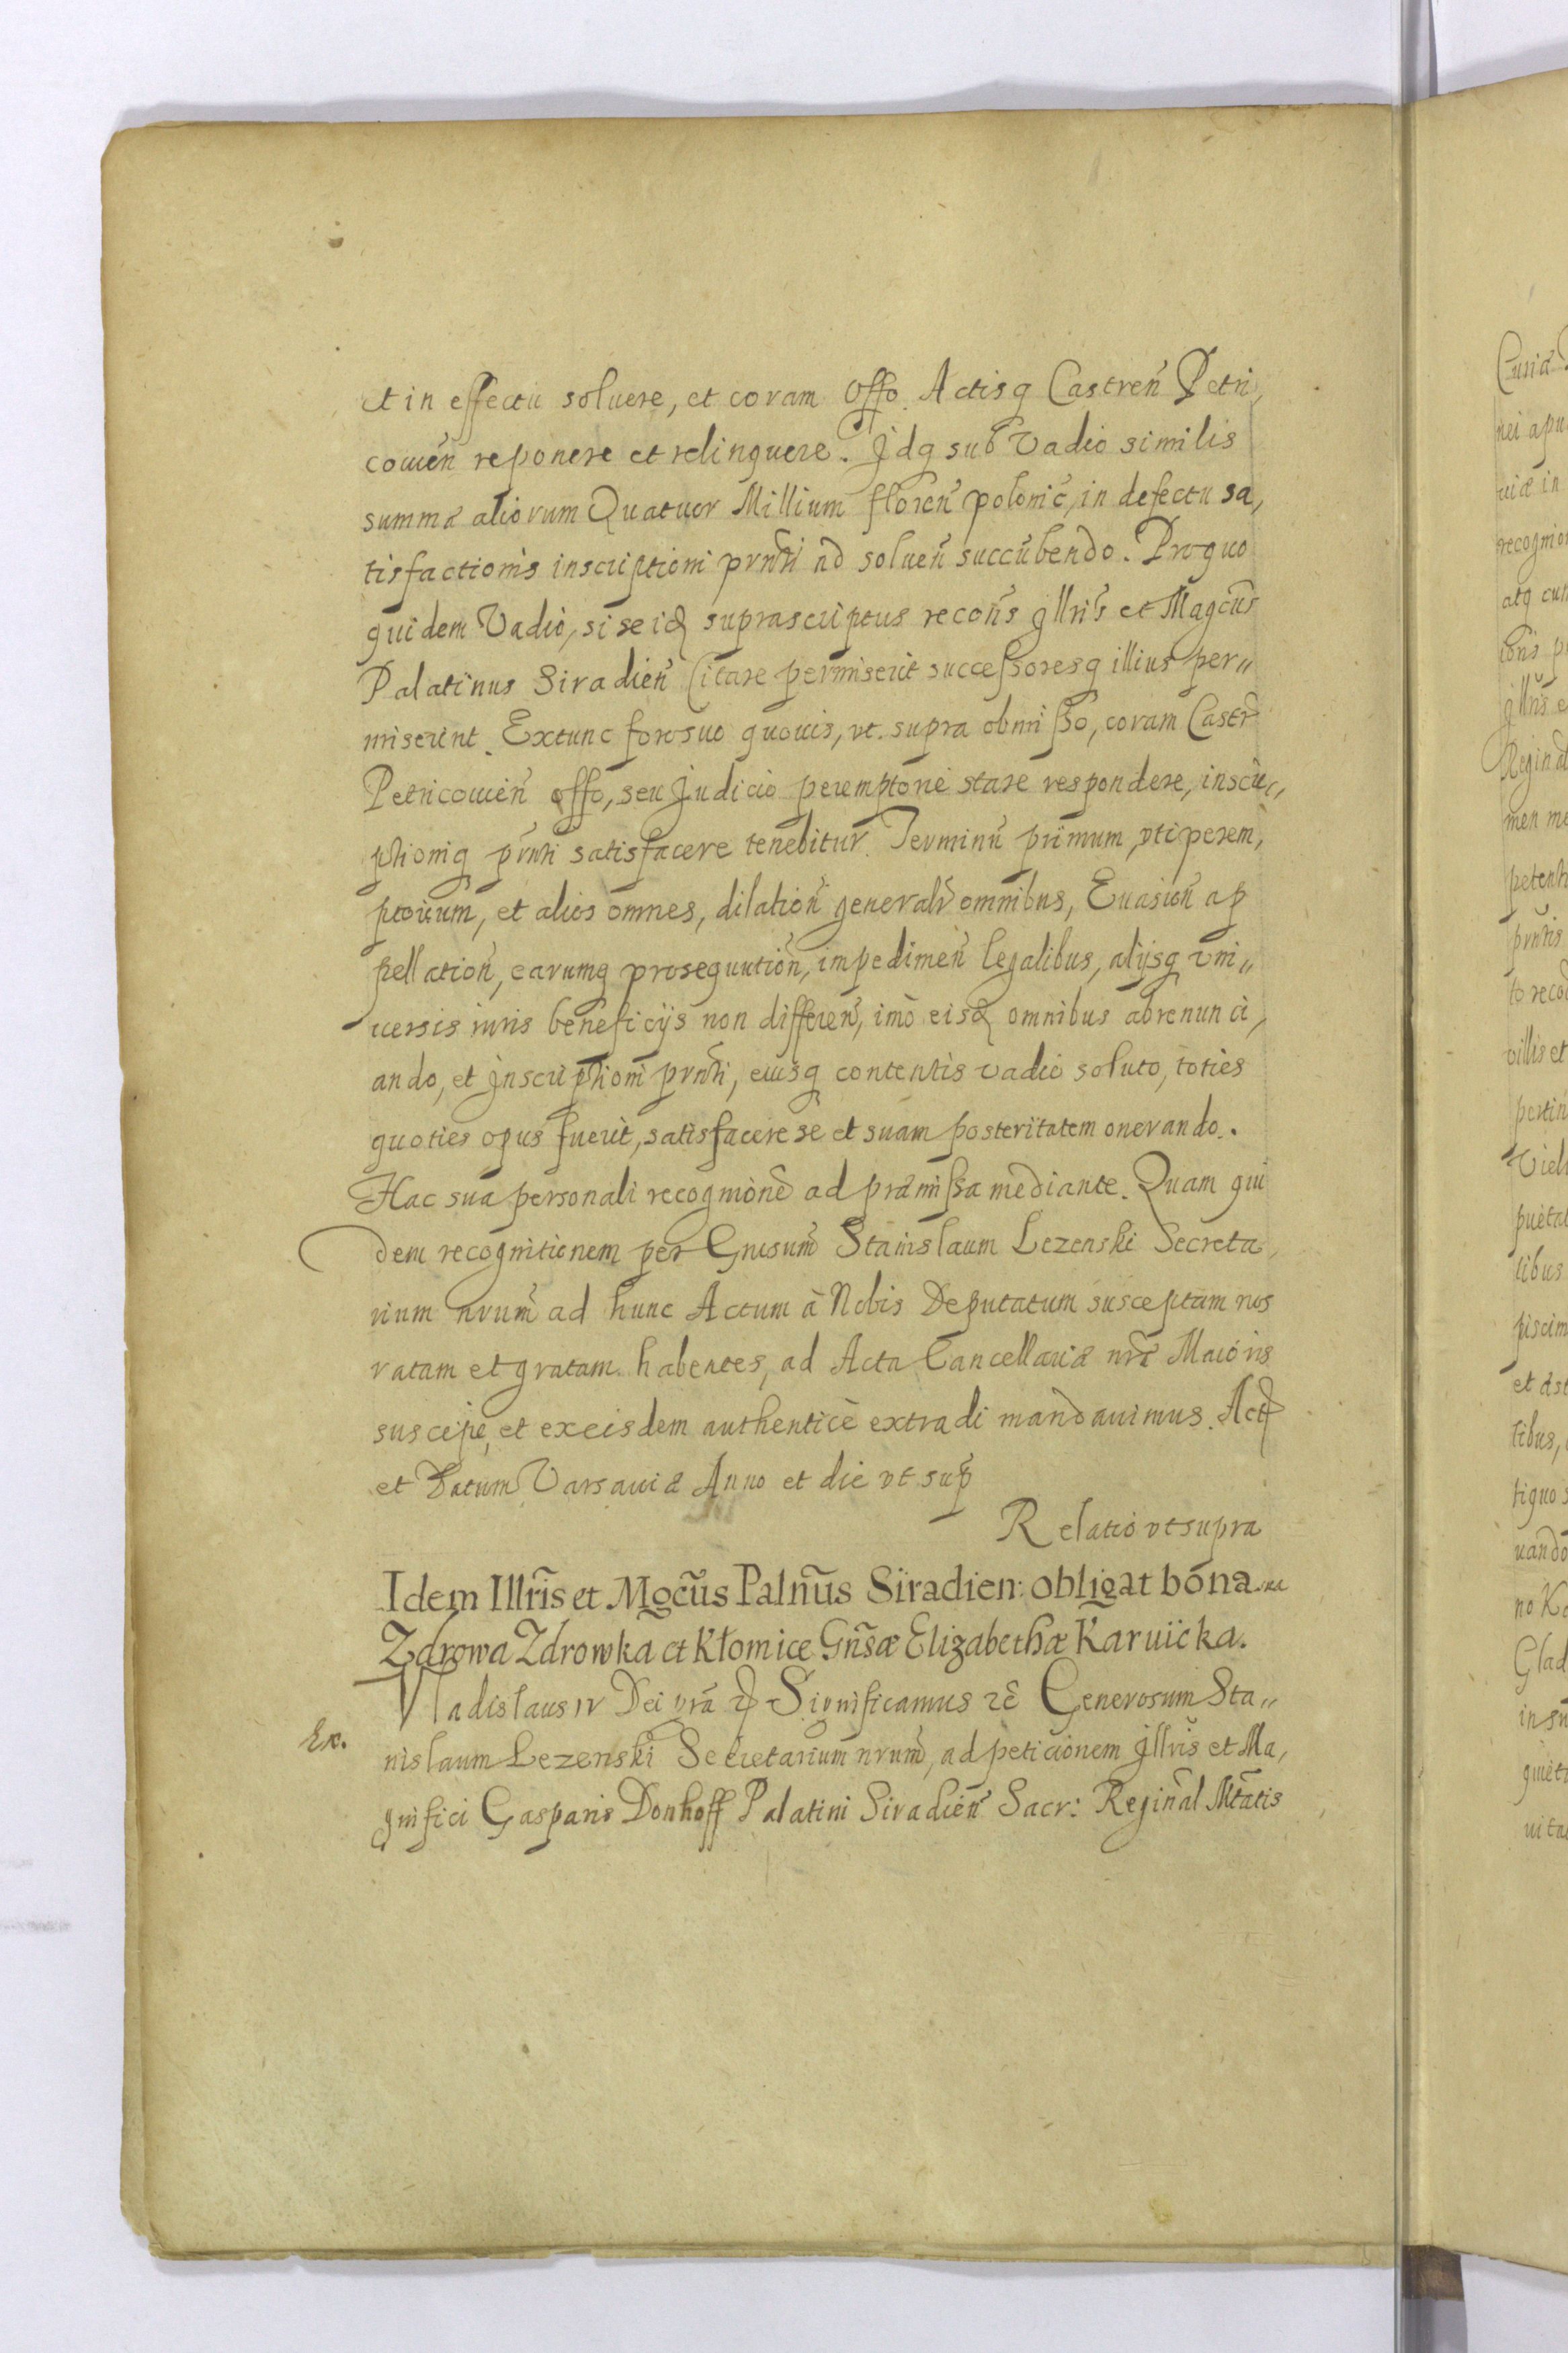 et in effectu soluere, et coram Offo. Actisq Castren̄ Petri,
couien̄ reponere et relinquere. Idq sub Vadio similis
summæ aliorum Quatuor Millium floren̄ polonic̄, in defectu sa,
tisfactionis inscriptioni prn̄ti nō soluen̄ succūbendo. Pro quo
quidem Vadio, si se id suprascriptus recon̄s Illris et Magcūs
Palatinus Siradien̄ Citare permiserit successoresq illius per„
miserint. Extunc foro suo quouis, vt supra obmisso, coram Castr̄
Petricouien̄ offo, seu Judicio peremptorie stare respondere, inscri„
ptioniq prn̄ti satisfacere tenebitur. Terminū primum, vti perem,
ptorium, et alios omnes, dilation̄ generalr̄ omnibus, Euasion̄ ap
pellation̄, earumq prosequution̄, impedimen̄ legalibus, alijsq vni„
uersis iuris beneficijs non differen̄, imò eisd omnibus abrenunci,
ando, et Inscriptioni prn̄ti, eiusq contentis vadio soluto, toties
quoties opus fuerit, satisfacere se et suam posteritatem onerando.
Hac sua personali recognionē ad præmissa mediante. Quam qui
dem recognitionem per Gnīsum Stanislaum Lezenski Secreta,
rium nrum̄ ad hunc Actum à Nobis Deputatum susceptam nos
ratam et gratam habentes, ad Acta Cancellariæ nrǣ Maioris
suscipi, et ex eisdem authenticè extradi mandauimus. Act
et Datum Varsauiæ Anno et die vt sup
Relatio vt supra
Idem Illrīs et Mgcūs Palnūs Siradien: obligat bona sua
Zdrowa Zdrowka et Kłomice Gnsǣ Elizabethæ Karwicka.
Vladislaus IV Dei gra̅ etc Significamus etc̄ Generosum Sta„
Ex.
nislaum Lezenski Secretarium nrum̄, ad peticionem Illris et Ma,
gnifici Gasparis Donhoff Palatini Siradien̄ Sacr: Reginal̄ Mtātis